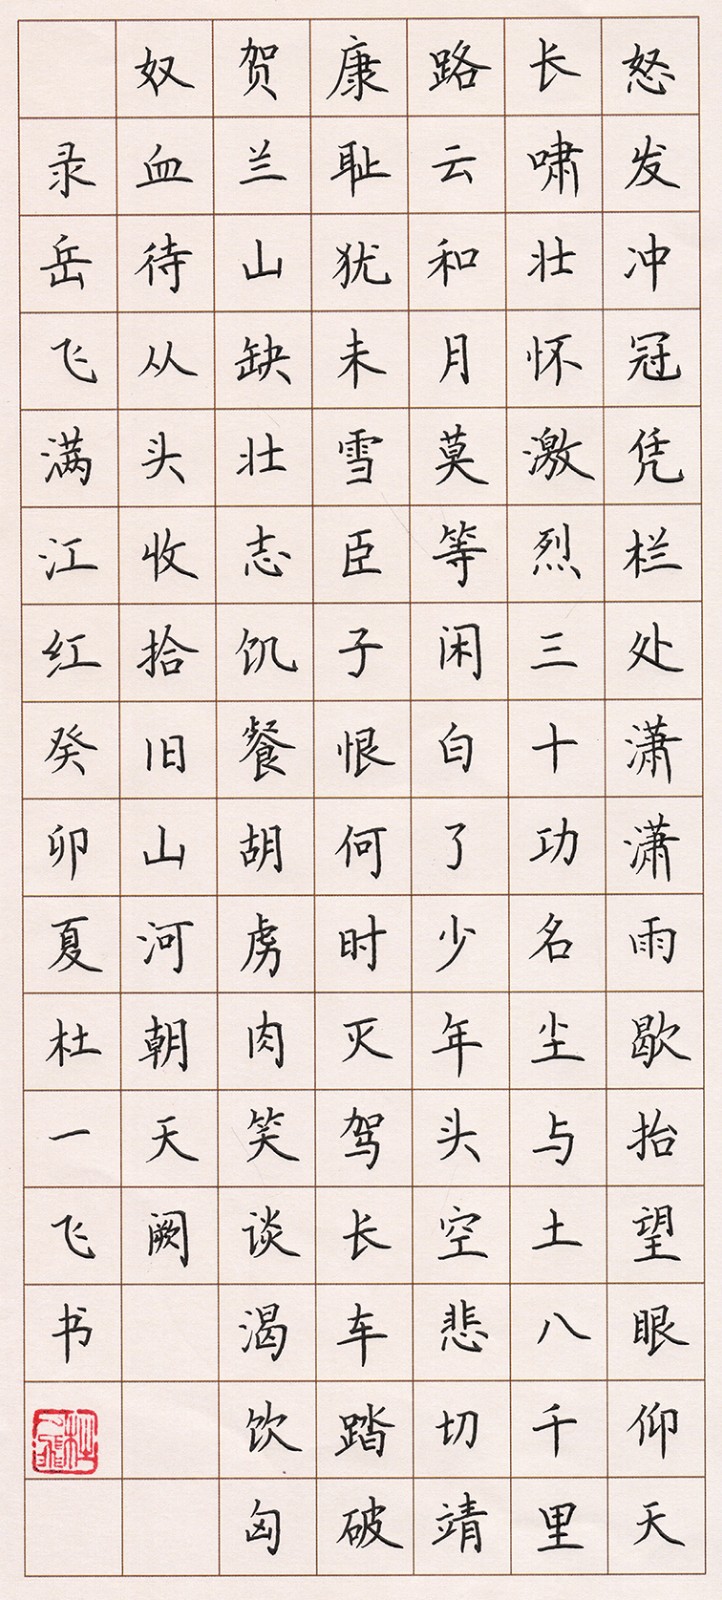 怒发冲冠凭栏处潇潇雨歇抬望眼仰天
长啸壮怀激烈三十功名尘与土八千里
路云和月莫等闲白了少年头空悲切靖
康耻犹未雪臣子恨何时灭驾长车踏破
贺兰山缺壮志饥餐胡虏肉笑谈渴饮匈
奴血待从头收拾旧山河朝天阙
录岳飞满江红癸卯夏杜一飞书